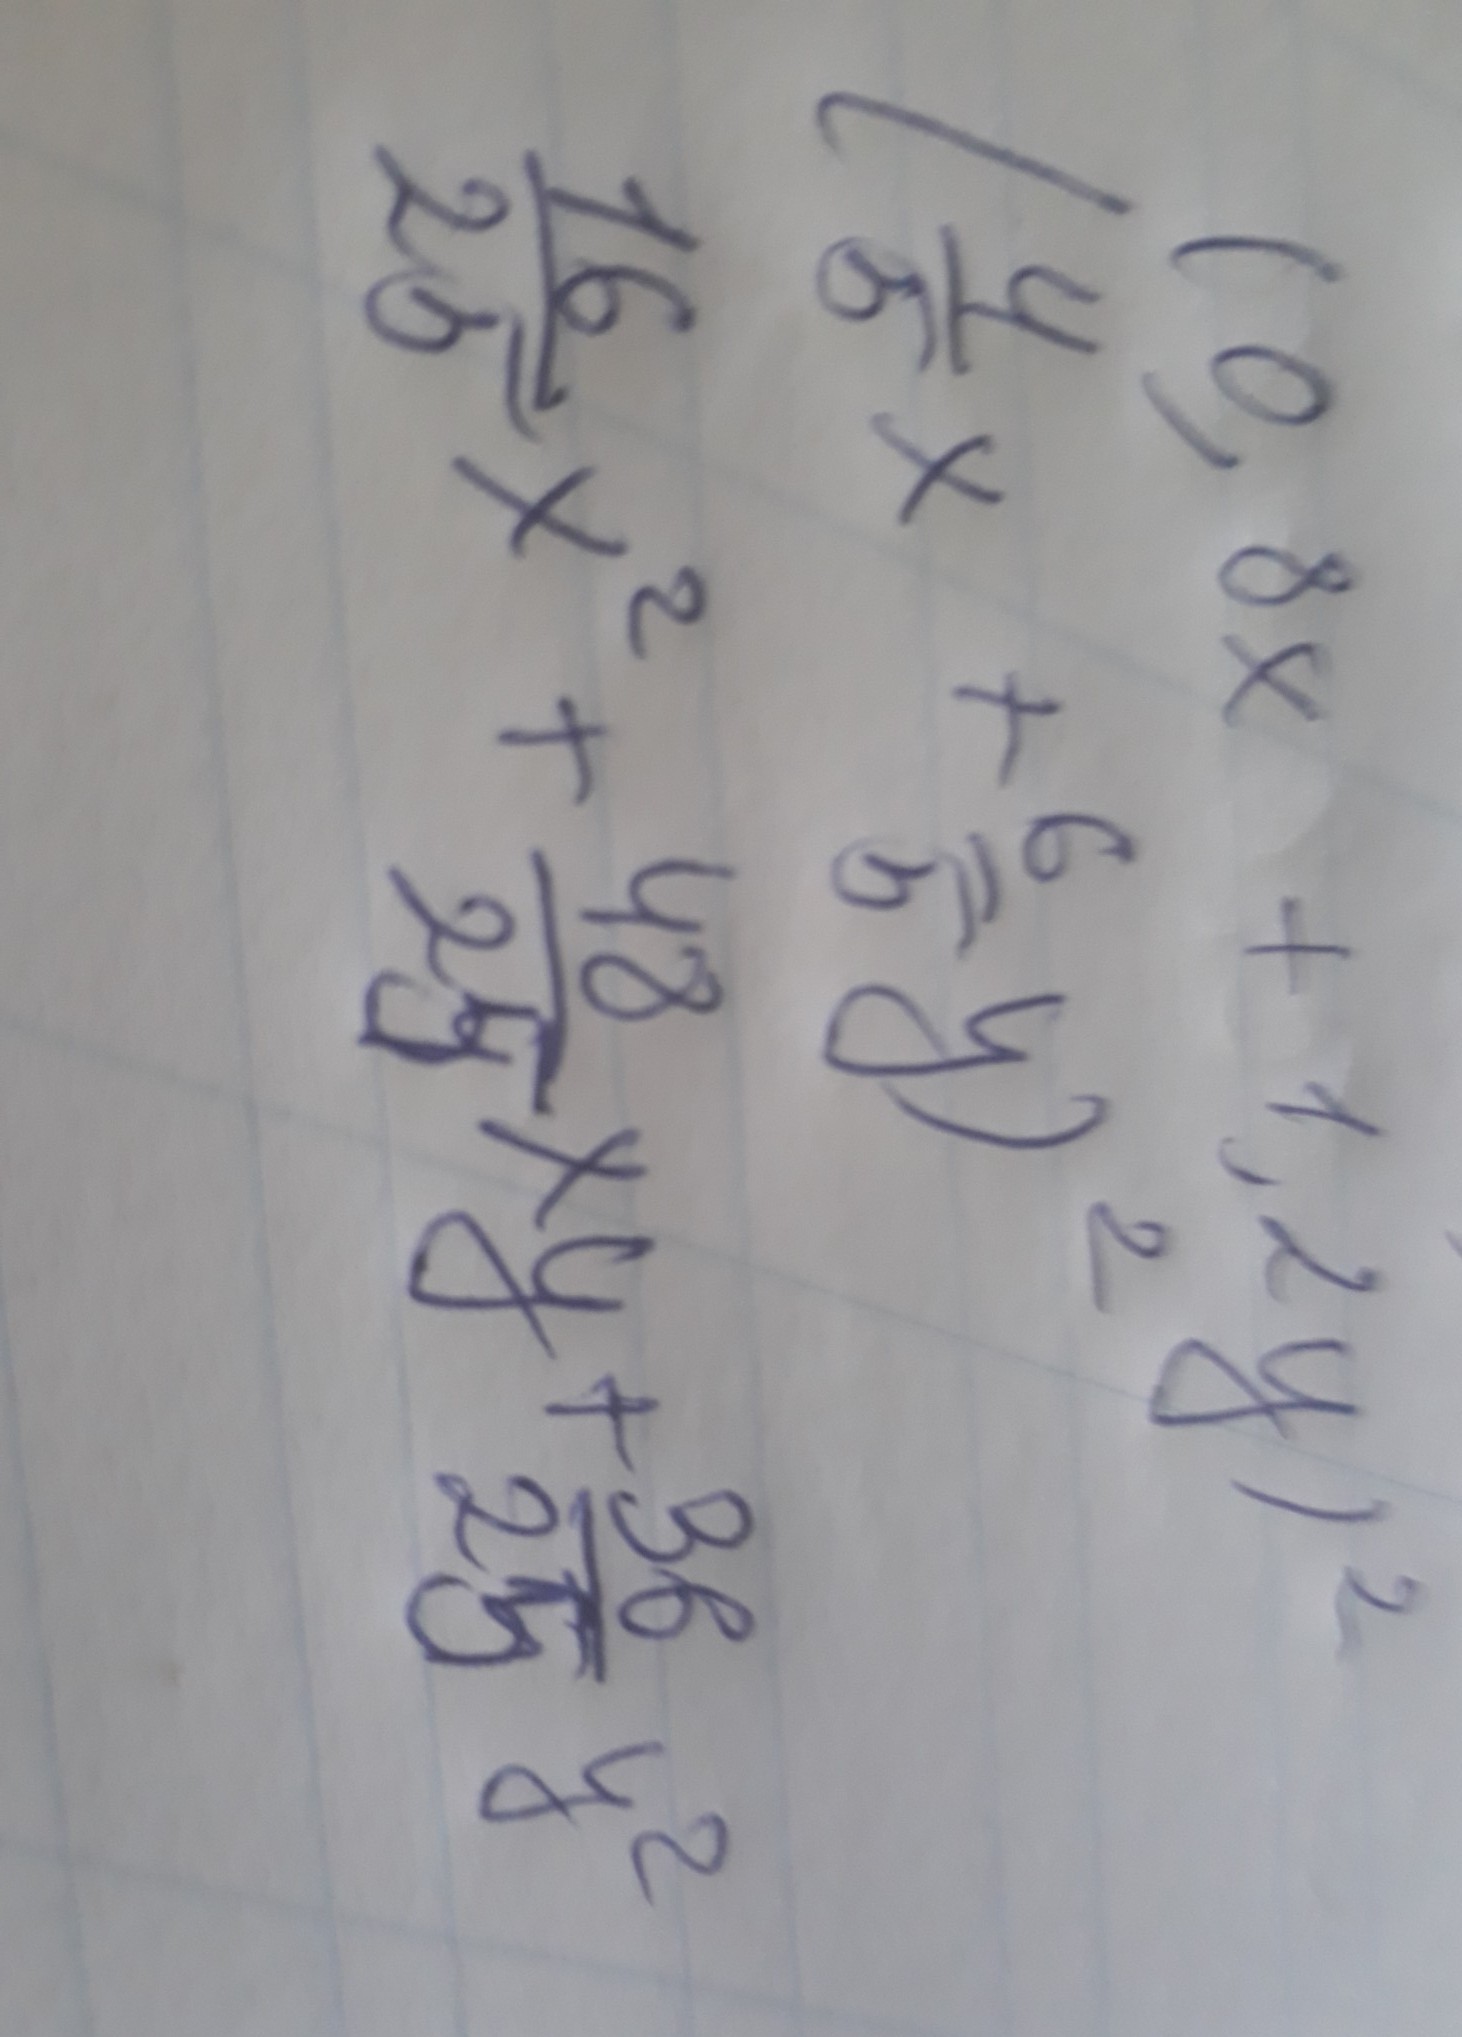 (0,8x + 1,2y)²
(4/5 x + 6/5 y)²
16/25 x² + 48/25 xy + 36/25 y²